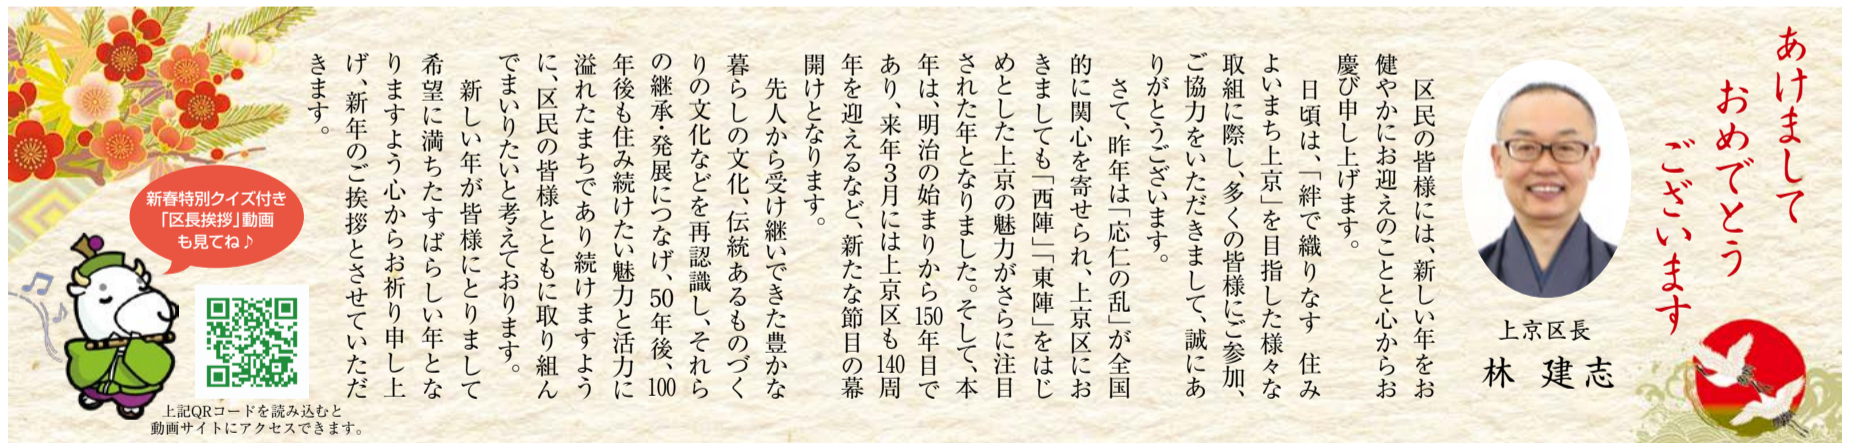 あけまして
おめでとう
ございます
上京区長
林 建志
区民の皆様には、新しい年をお
健やかにお迎えのことと心からお
慶び申し上げます。
日頃は、「絆で織りなす 住み
よいまち上京」を目指した様々な
取組に際し、多くの皆様にご参加、
ご協力をいただきまして、誠にあ
りがとうございます。
さて、昨年は「応仁の乱」が全国
的に関心を寄せられ、上京区にお
きましても「西陣」「東陣」をはじ
めとした上京の魅力がさらに注目
された年となりました。そして、本
年は、明治の始まりから150年目で
あり、来年3月には上京区も140周
年を迎えるなど、新たな節目の幕
開けとなります。
先人から受け継いできた豊かな
暮らしの文化、伝統あるものづく
りの文化などを再認識し、それら
の継承・発展につなげ、50年後、100
年後も住み続けたい魅力と活力に
溢れたまちであり続けますよう
に、区民の皆様とともに取り組ん
でまいりたいと考えております。
新しい年が皆様にとりまして
希望に満ちたすばらしい年とな
りますよう心からお祈り申し上
げ、新年のご挨拶とさせていただ
きます。
新春特別クイズ付き
「区長挨拶」動画
も見てね♪
上記QRコードを読み込むと
動画サイトにアクセスできます。